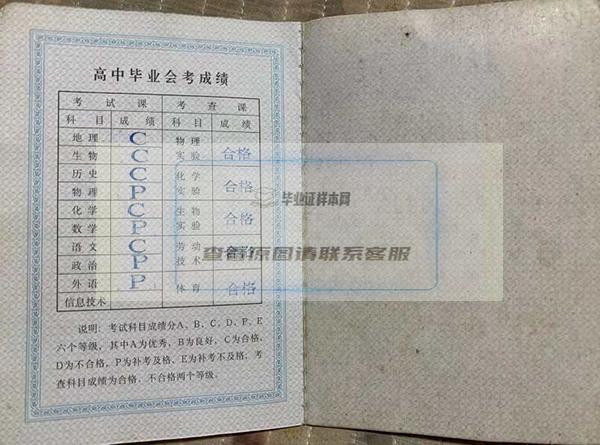 高中毕业会考成绩
考试课 考查课
科目 成绩 科目 成绩
地理 C 物理
生物 C 实验 合格
历史 C 化学
物理 P 实验 合格
化学 C 生物
数学 P 实验 合格
语文 C 劳动
政治 P 技术 合格
外语 P 体育 合格
信息技术
毕业证样本网
查看原图请联系客服
说明：考试科目成绩分A、B、C、D、P、E
六个等级，其中A为优秀，B为良好，C为合格，
D为不合格，P为补考及格、E为补考不及格；考
查科目成绩为合格、不合格两个等级。